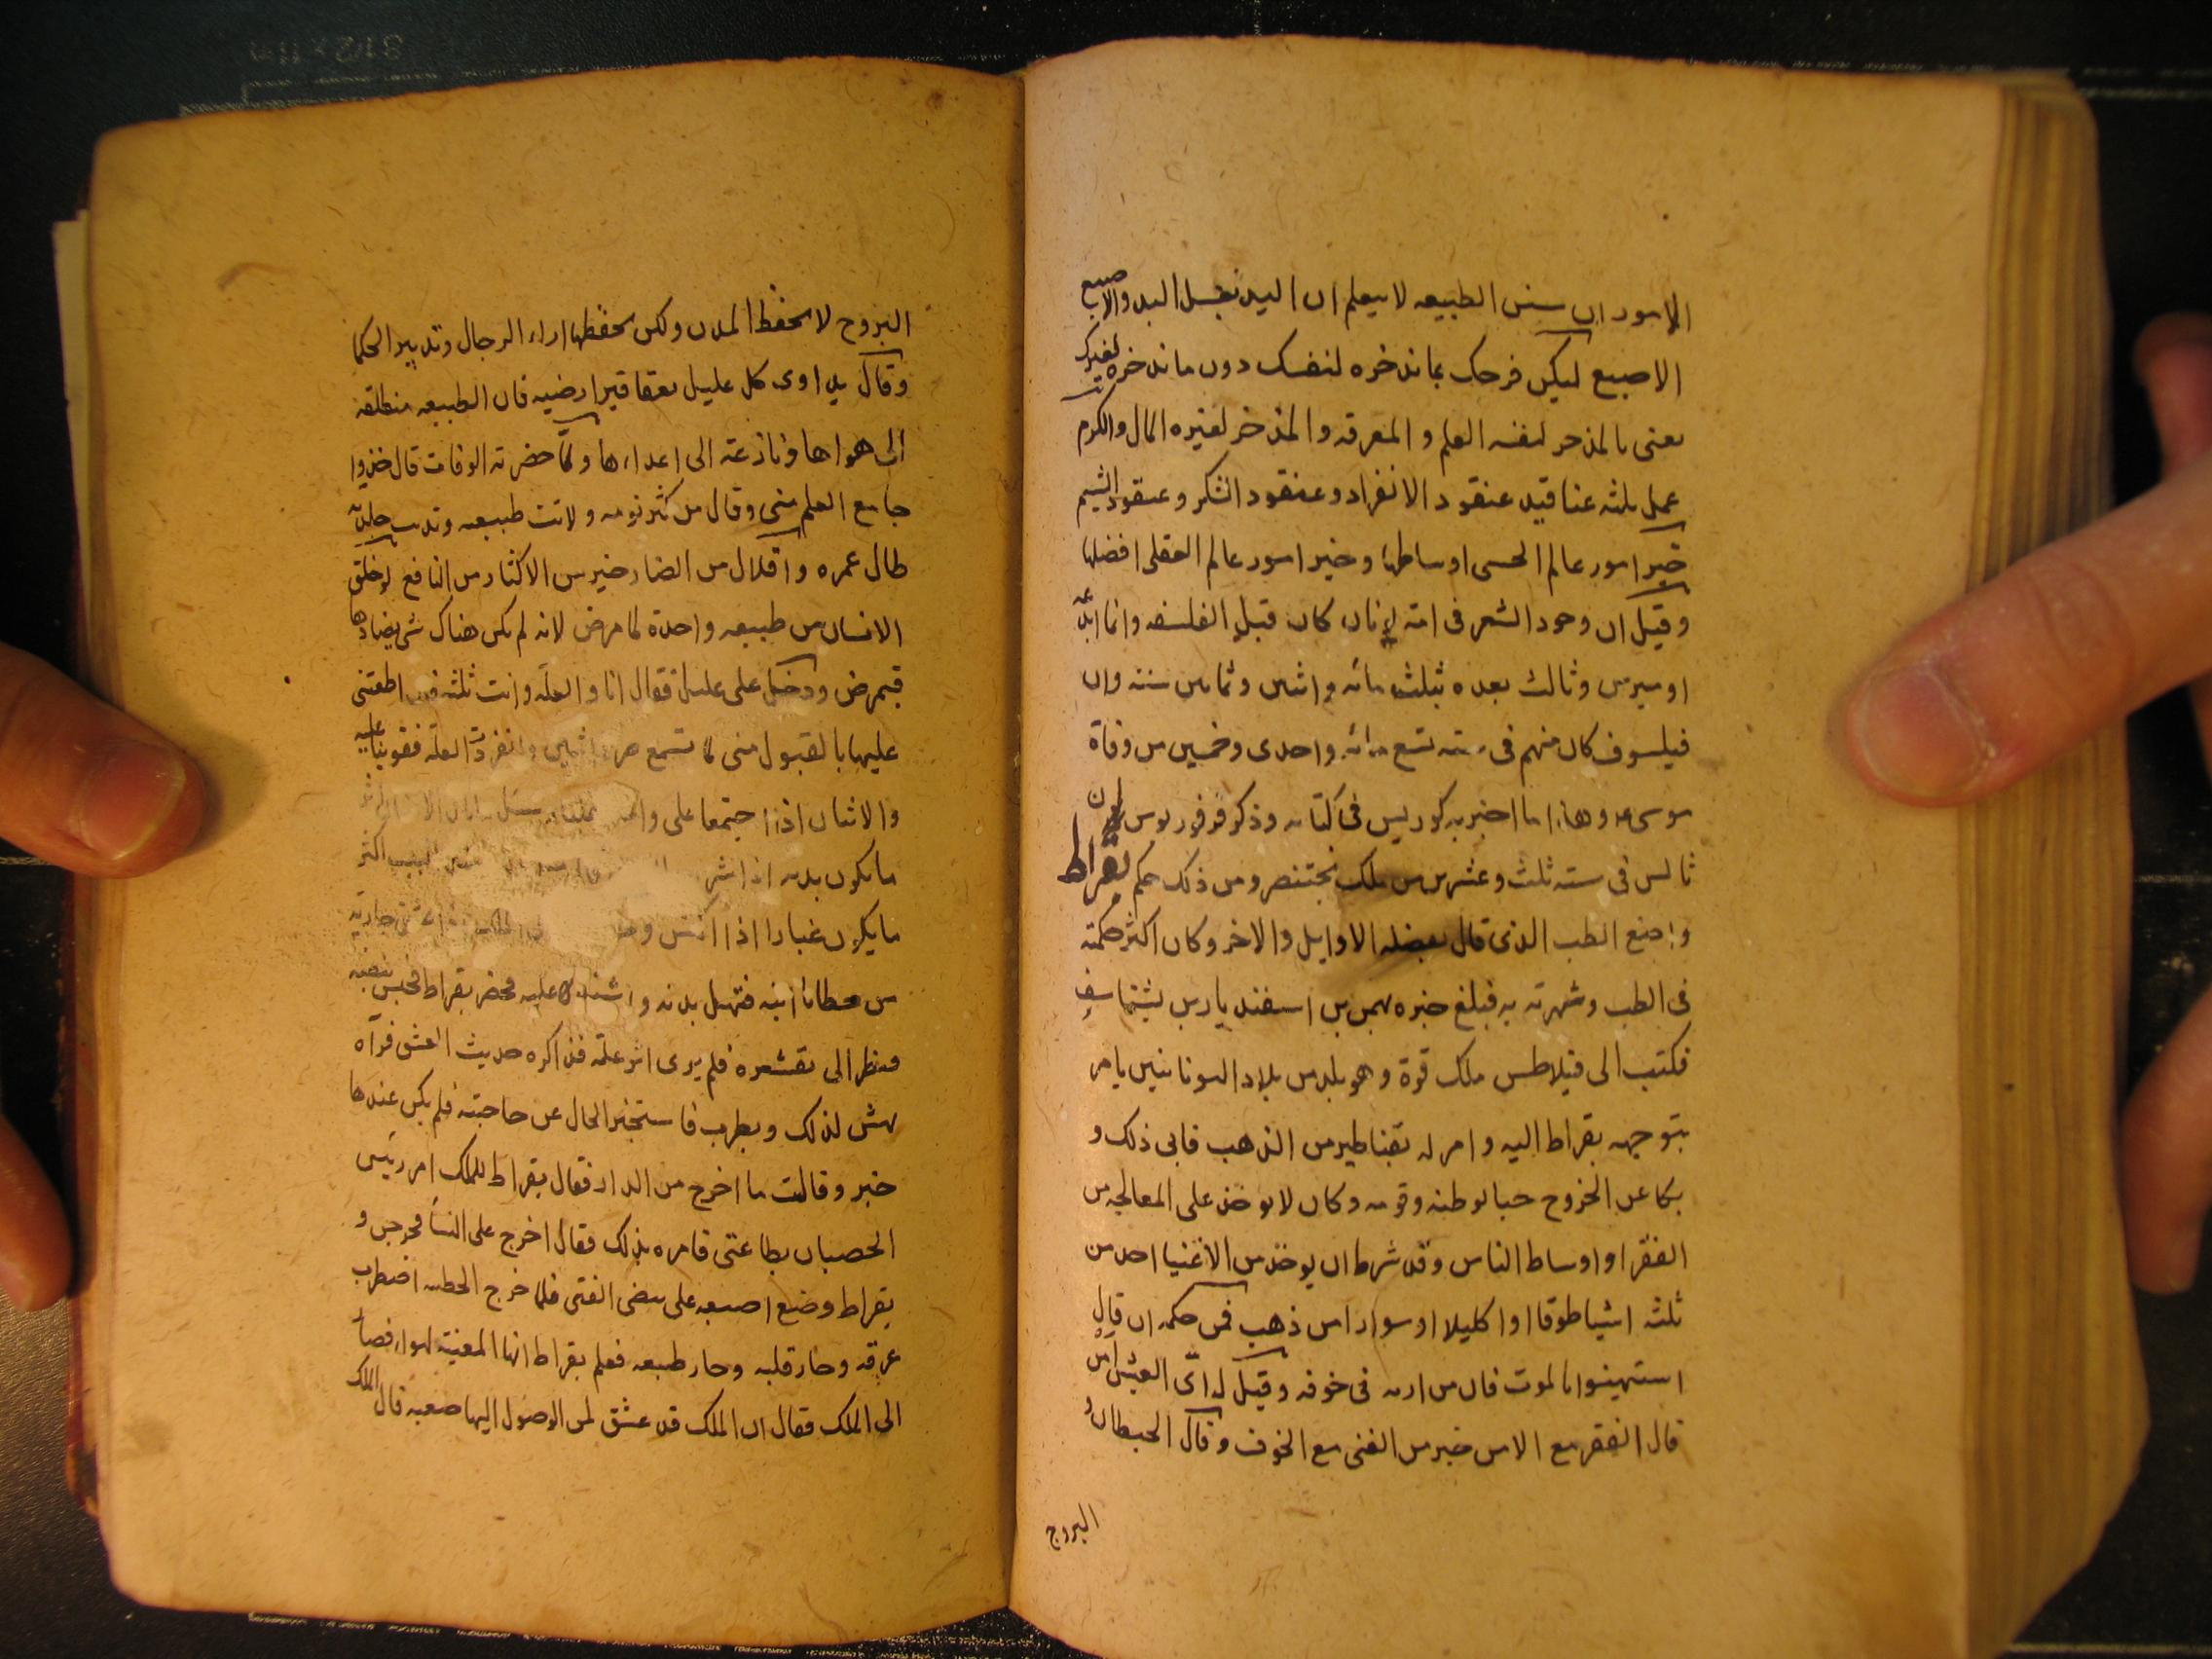 الامور ان سنن الطبيعه لا يتعلم ان اليد تغسل اليد والاصبع
الاصبع ليكن فرحك بما تدخره لنفسك دون ما تدخره لغيرك
يعنى بالمدخر لنفسه العلم و المعرفه و المدخر لغيره المال والكرم
يحمل ثلثه عناقيد عنقود الالتذاذ و عنقود السكر و عنقود الشيم
خير امور عالم الحسى اوساطها و خير امور عالم العقلى افضلها
و قيل ان وجود الشعر فى امة يونان كان قبل الفلسفه وانما ابدعه
اوميرس و ثالث بعده بثلث مائه و اثنين و ثمانين سنه وان
فيلسوف كان منهم فى سنه تسع مائه و احدى وخمسين من وفاة
موسى و هذا ما اخبر به كورييس فى كتابه وذكر فرفوريوس ان
ثالس فى سنه ثلث و عشرين من ملك بختنصر و من ذلك حكم بقراط
واضع الطب الذى قال بفضله الاوايل والاخر و كان اكثر حكمته
فى الطب و شهرته به فبلغ خبره بهمن بن اسفنديار بن بشتاسف
فكتب الى فيلاطس ملك قوة و هو بلد من بلاد اليونانيين يامر
بتوجيه بقراط اليه و امر له بقناطير من الذهب فابى ذلك و
بكا عن الخروج حبا لوطنه و قومه و كان لا يوخذ على المعالجه من
الفقرا و اوساط الناس و قد شرط ان يوخذ من الاغنيا احد من
ثلثه اشيا طوقا او اكليلا او سوارا من ذهب فمن حكمه ان قال
استهينوا بالموت فان مرارته فى خوفه و قيل له اىّ العيش
قال الفقر مع الامن خير من الغنى مع الخوف و قال الحيطان و
البروج
البروج لا تحفظ المدن و لكن تحفظها اراء الرجال و تدبير الحكما
و قال يداوى كل عليل بعقاقير ارضيه فان الطبيعه منطلقه
الى هواها و نازعة الى اعداءها و لمّا حضرته الوفات قال خذوا
جامع العلم منى و قال من كثر نومه و لانت طبيعه و ندت جلدته
طال عمره و اقلال من الضار خير من الاكثار من النافع لو خلق
الانسان من طبيعه واحدة لما مرض لانه لم يكن هناك شى يضادها
فيمرض و دخل على عليل فقال انا و العلّه و انت ثلثه فان اطعتنى
عليها بالقبول منى لما تسمع اثنين و انفردت العلّه فقوينا عليه
والاثنان اذا اجتمعا على
ما يكون بدنه اذا
ما يكون غبارا اذا كنس
من حظايا ابيه فنهل بدنه و اشتدت عليه فحضر بقراط فجس نبضه
ونظر الى تفسره فلم يرى اثر علّه فذاكره حديث العشق فرآه
يهش لذلك و يطرب فاستخبر الحال عن حاجته فلم يكن عندها
خبر و قالت ما اخرج من الدار فقال بقراط للملك امر رئيس
الخصيان بطاعتى فامره بذلك فقال اخرج على النسا فخرجن و
بقراط وضع اصبعه على نبض الفتى فلما خرج الحظيه اضطرب
عرقه و حار قلبه و حار طبعه فعلم بقراط انها المعنيّه لهواه فصار
الى الملك فقال ان الملك قد عشق لمن الوصول اليها صعبه قال الملك